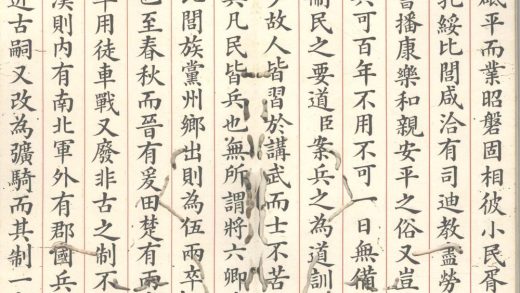 砥平而業昭磐固相彼小民胥
孔綏比閭咸洽有司迪教盡勞
音播康樂和親安平之俗又豈
兵可百年不用不可一日無備
民之要道臣案兵之為道訓
故人皆習於講武而士不苦
其凡民皆兵也無所謂將六卿
比閭族黨州鄉出則為伍兩卒
也至春秋而晉有爰田楚有兩
卒用徒車戰又廢非古之制不
漢則内有南北軍外有郡國兵
近古嗣又改為彍騎而其制一